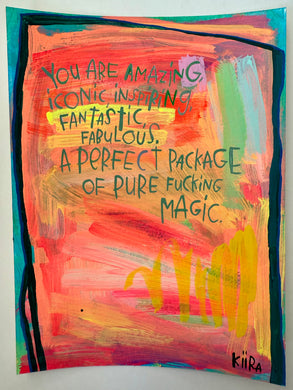 YOU ARE AMAZING,
ICONIC INSPIRING,
FANTASTIC
FABULOUS.
A PERFECT PACKAGE
OF PURE FUCKING
MAGIC.
KiiRA